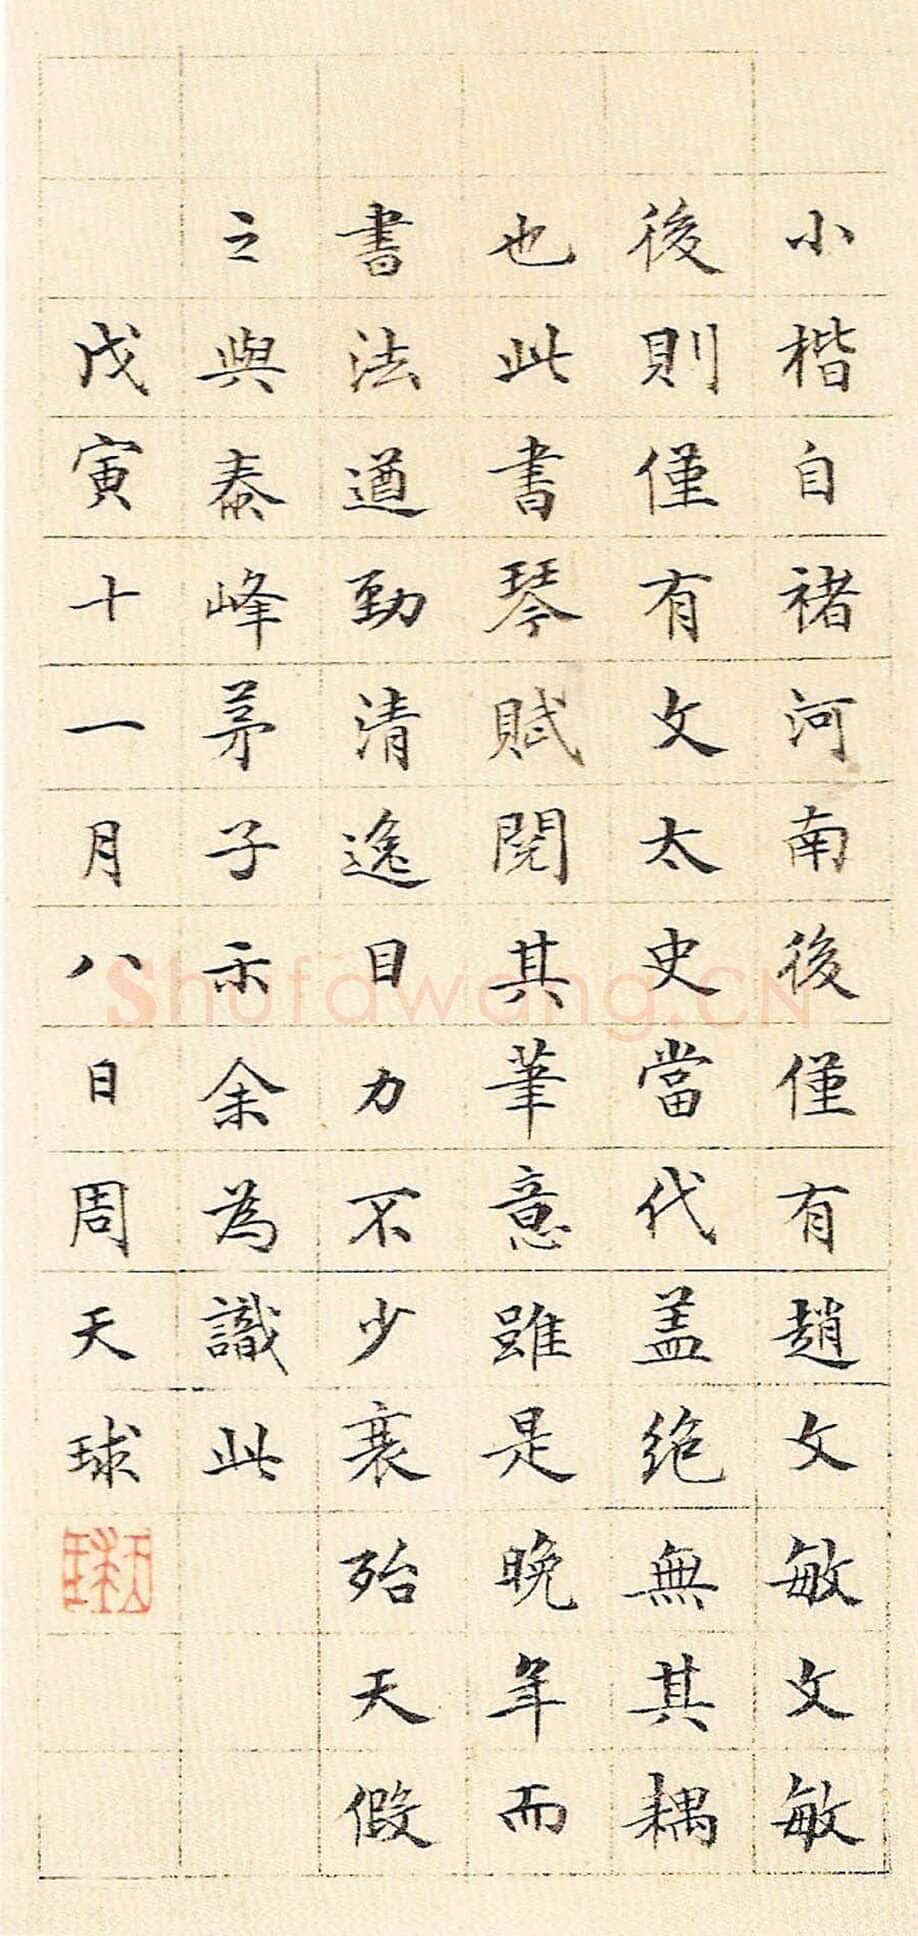 小楷自褚河南後僅有趙文敏文敏
後則僅有文太史當代盖绝無其耦
也此書琴賦閱其筆意雖是晚年而
書法遒勁清逸目力不少衰殆天假
之與泰峰茅子示余為識此
戊寅十一月八日周天球
Shufawang.CN